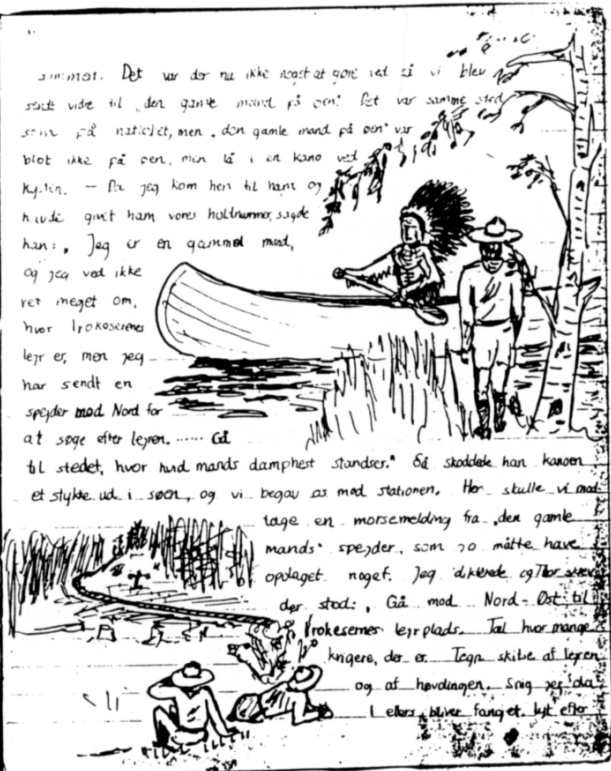 sammen. Det var der nu ikke noget at gøre ved så vi blev
sendt vidre til "den gamle mand på øen". Det var samme sted
som på natløbet, men "den gamle mand på øen" var
blot ikke på øen, men lå i en kano ved
kysten. – Da jeg kom hen til ham og
havde givet ham vores holdnummer, sagde
han: "Jeg er en gammel mand,
og jeg ved ikke
ret meget om,
hvor Irokesernes
lejr er, men jeg
har sendt en
spejder mod Nord for
at søge efter lejren. ...... Gå
til stedet, hvor hvid mands damphest standser." Så skoddede han kanoen
et stykke ud i søen, og vi begav os mod stationen. Her skulle vi mod
tage en morsemelding fra "den gamle
mands" spejder, som jo måtte have
opdaget noget. Jeg dikterede og skrev
der stod: "Gå mod Nord-Øst til
Irokesernes lejrplads. Tæl hvor mange
krigere, der er. Tegn skitse af lejren
og af høvdingen. Snig jer da
I ellers bliver fanget. Lyt efter